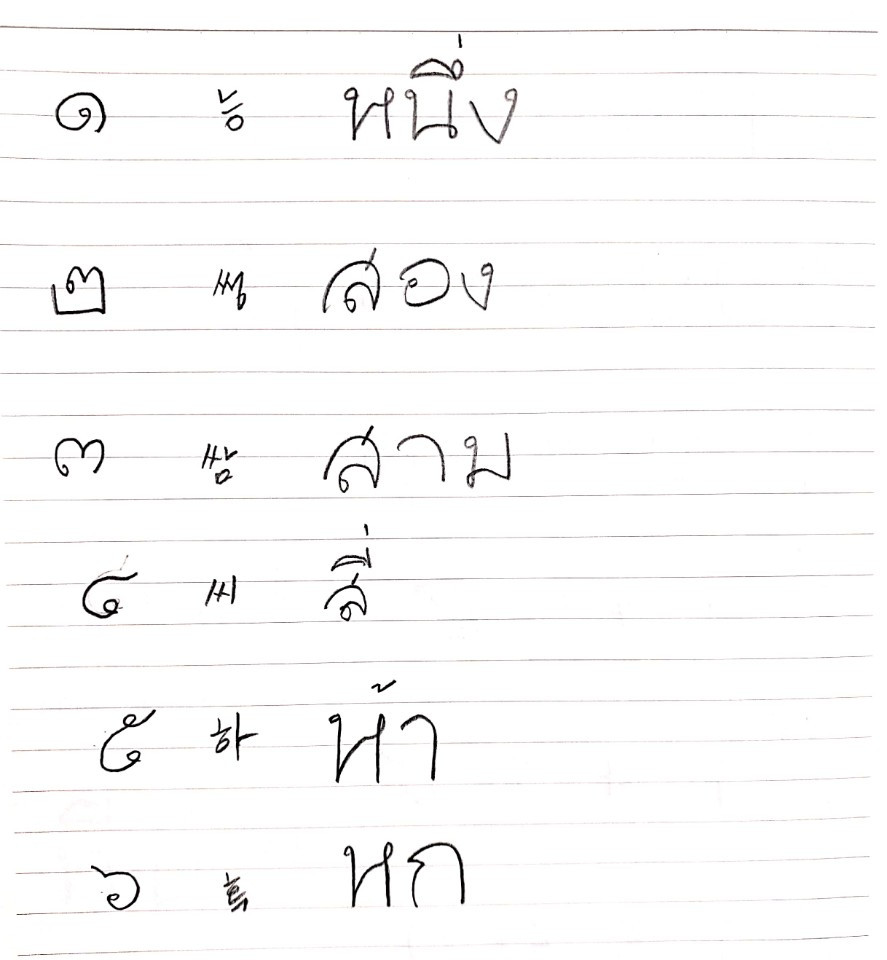 ๑ 능 หนึ่ง
๒ 썽 สอง
๓ 쌈 สาม
๔ 씨 สี่
๕ 하 ห้า
๖ 혹 หก